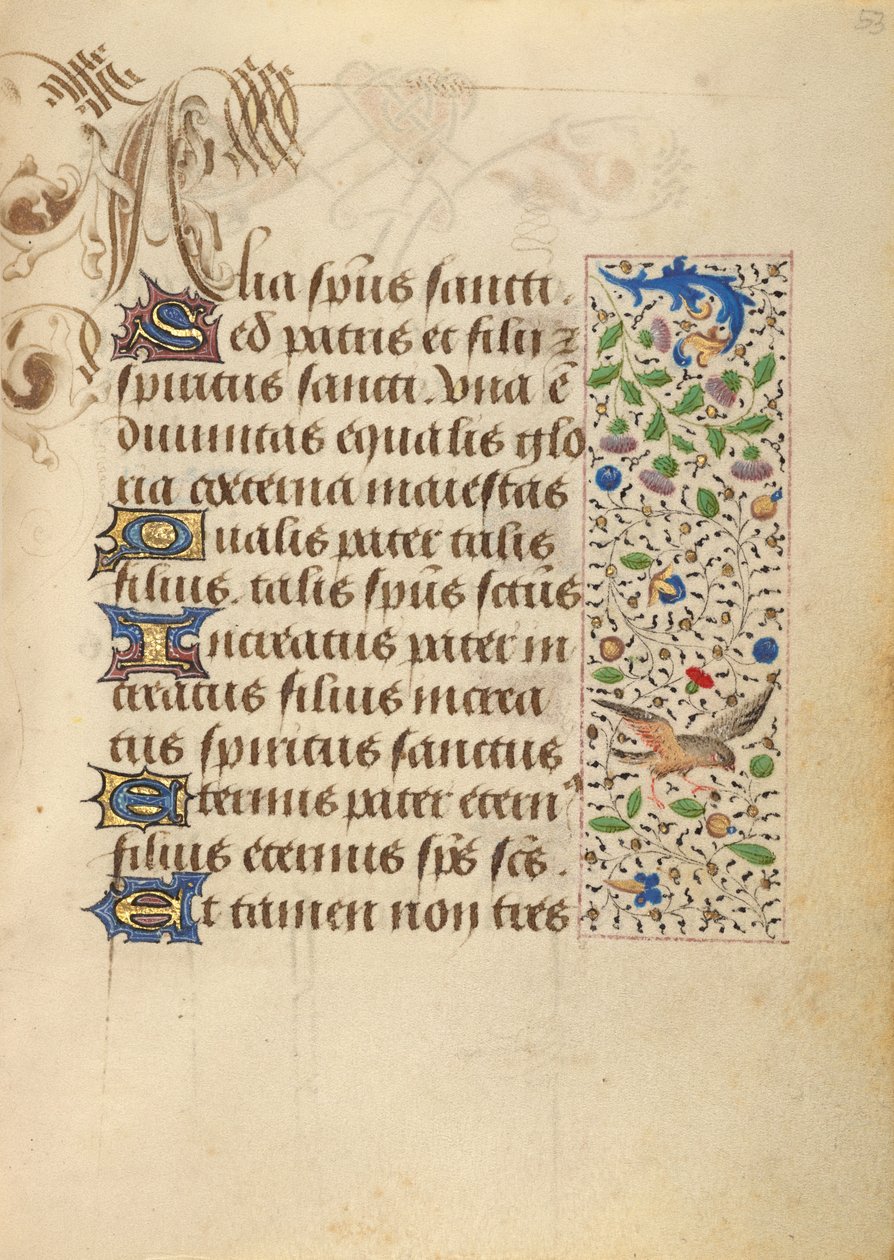 53
Alia spūs sancti.
Sed patris et filii ⁊
spiritus sancti. Vna ē
diuinitas equalis glo
ria coeterna maiestas
Qualis pater talis
filius. talis spūs sctūs
Increatus pater in
creatus filius increa
tus spiritus sanctus
Eternus pater etern⁹
filius eternus sp̄s sc̄s.
Et tamen non tres